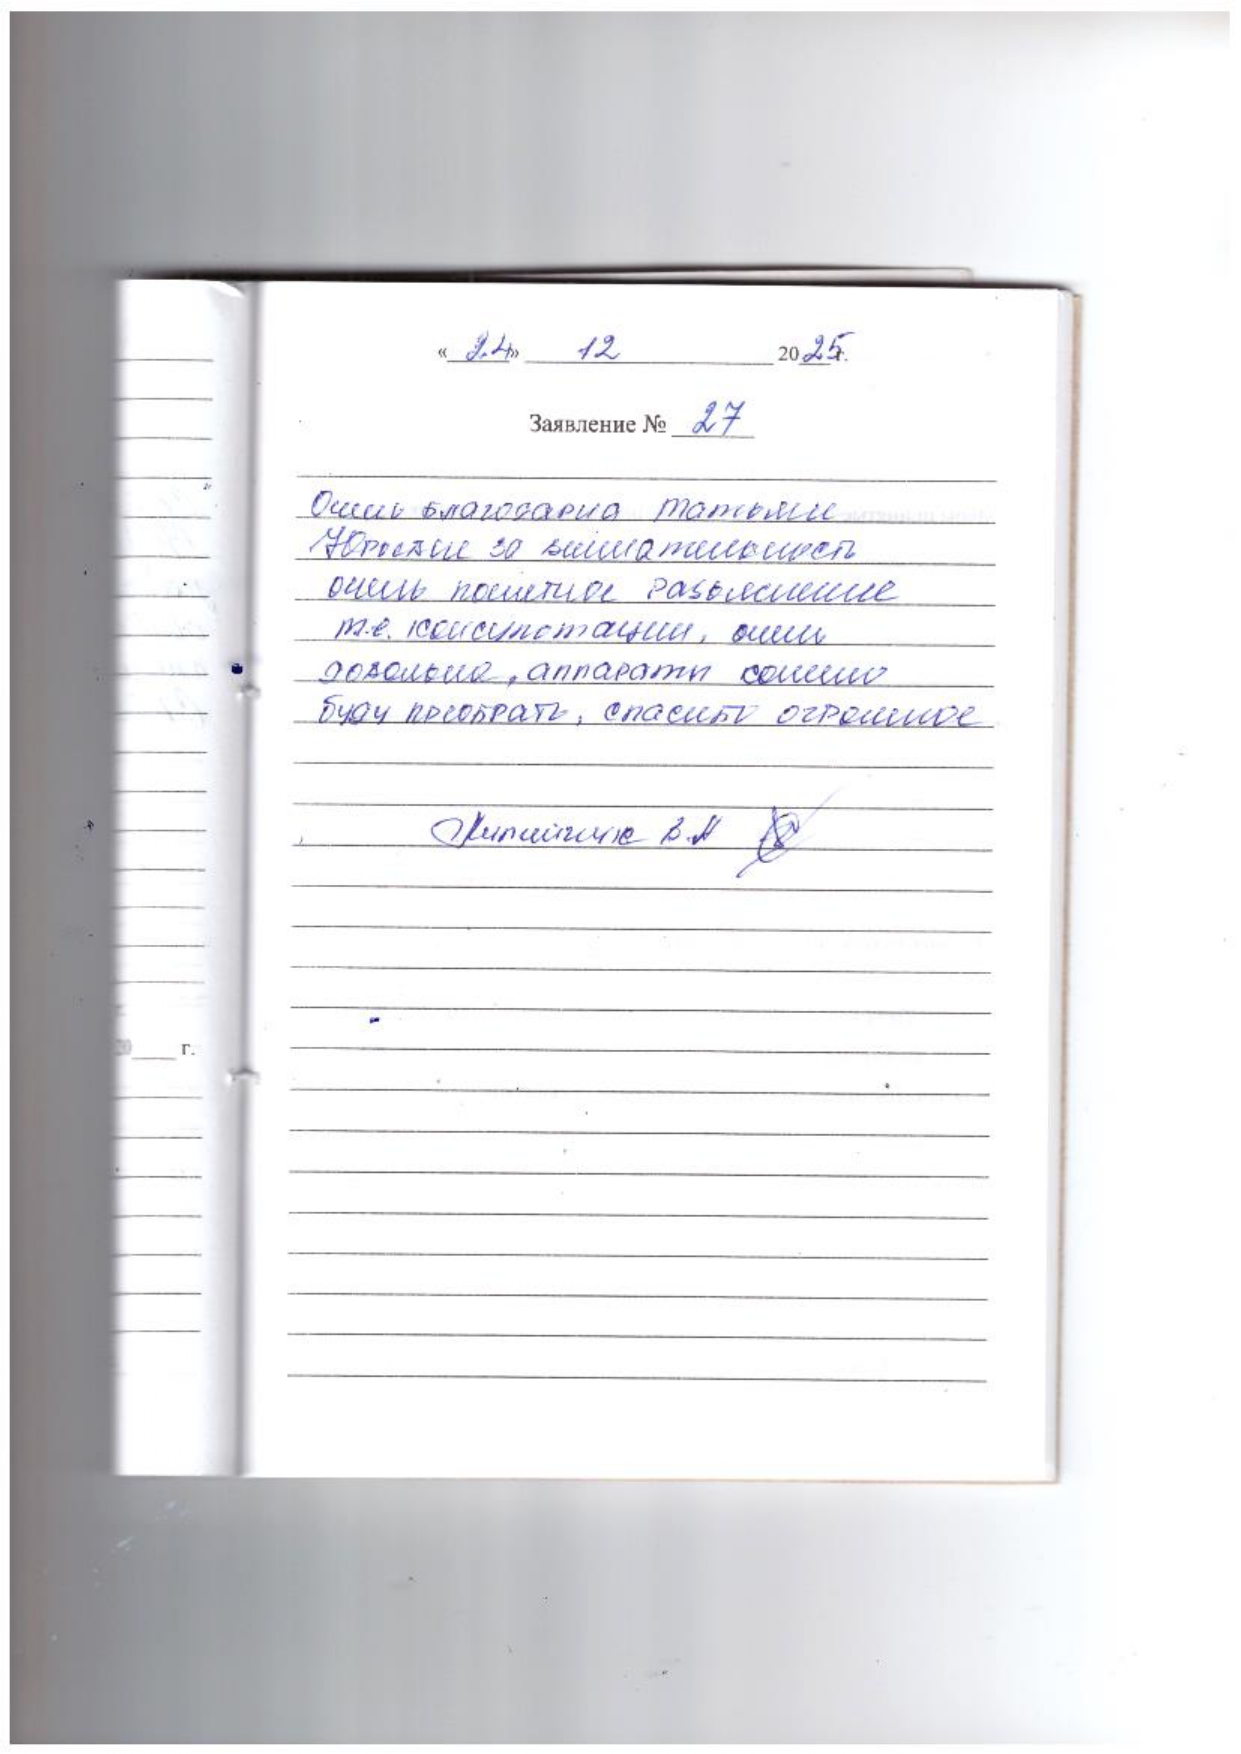 « 24» 12 2025г.
Заявление № 27
Очень благодарна Татьяни
Юрьевне за внимательность
очень понятное разъяснение
т.е. консультации, очень
довольна, аппараты
буду преобрать, спасибо огромное
В.М
20 г.